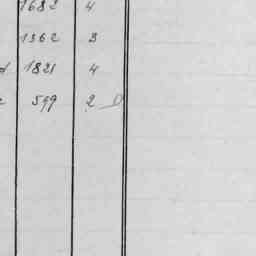 1682 4
1362 3
1821 4
599 2